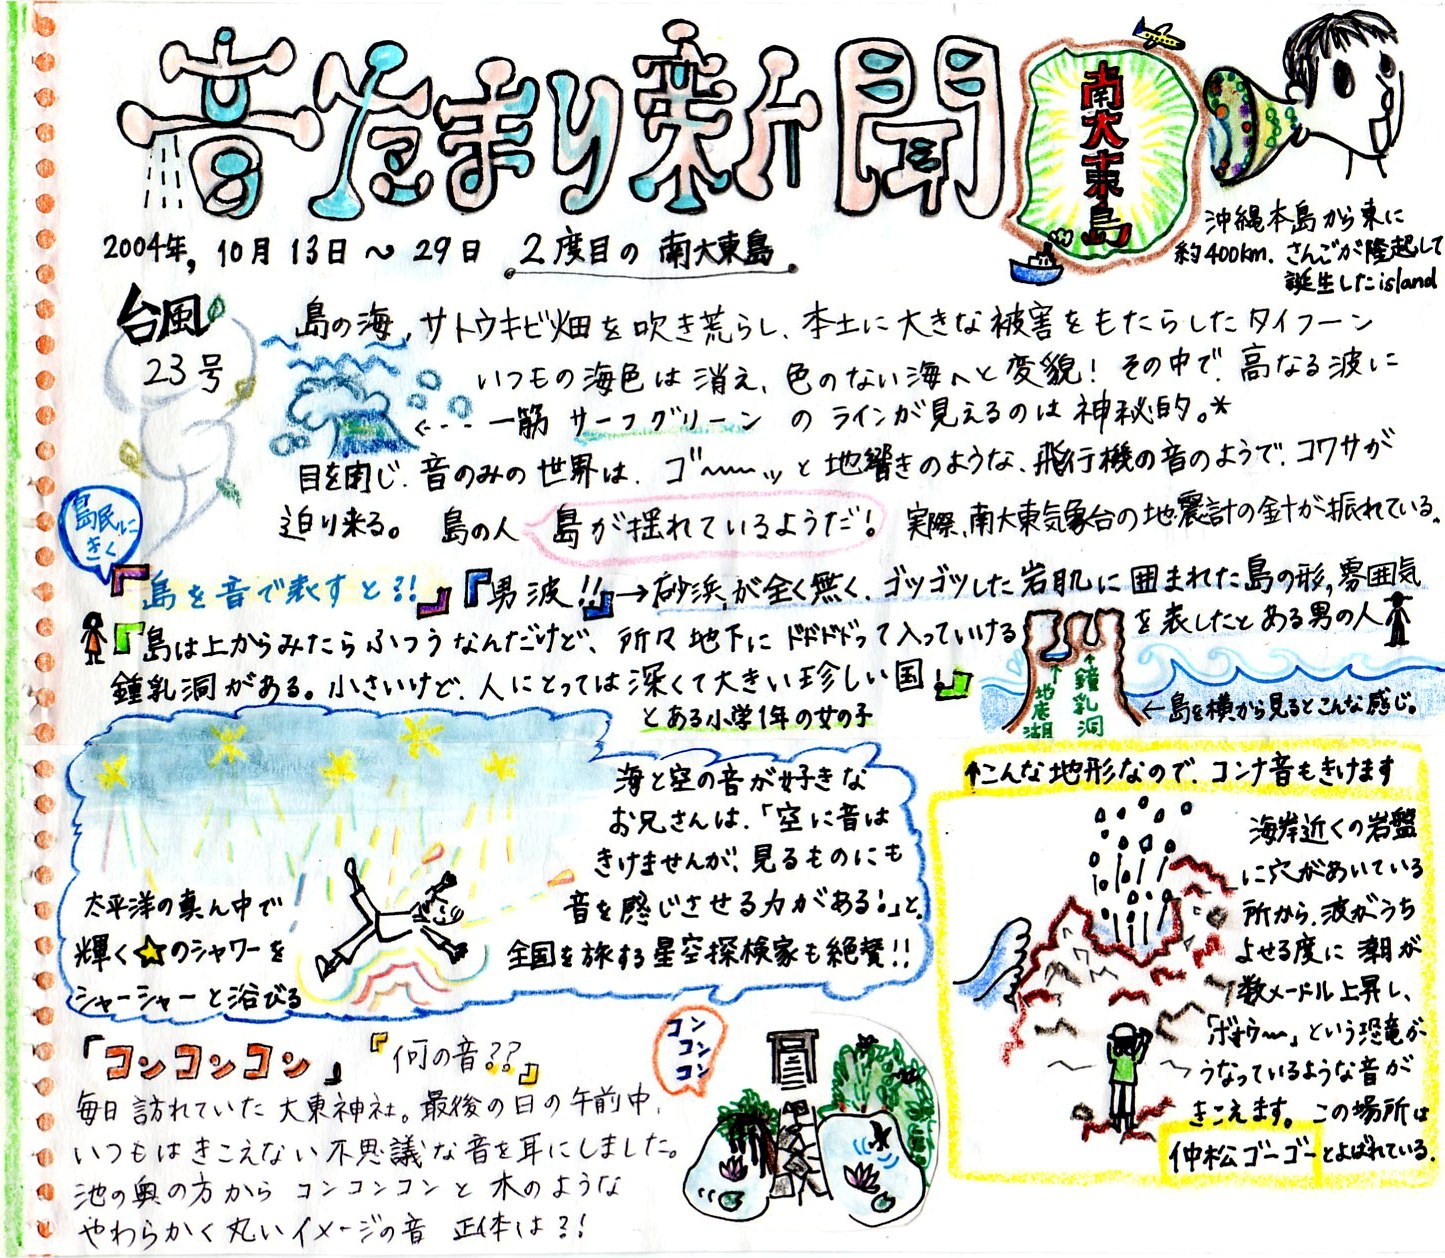 音たまり新聞
南大東島
沖縄本島から東に
約400km. さんごが隆起して
誕生したisland
2004年, 10月 13日 ~ 29日 2度目の 南大東島
台風
23号
島の海, サトウキビ畑を吹き荒らし、本土に大きな被害をもたらしたタイフーン
いつもの海色は消え、色のない海へと変貌! その中で、高なる波に
←--- 一筋 サーフグリーン の ラインが見えるのは神秘的。*
目を閉じ、音のみの世界は、ゴ〜〜ッと地響きのような、飛行機の音のようで、コワサが
迫り来る。 島の人 島が揺れているようだ! 実際、南大東気象台の地震計の針が振れている。
島民に
きく
『島を音で表すと?!』『男波!!』→砂浜が全く無く、ゴツゴツした岩肌に囲まれた島の形、雰囲気
を表したとある男の人
『島は上からみたらふつうなんだけど、所々地下にドドドドって入っていける
鍾乳洞がある。小さいけど、人にとっては深くて大きい珍しい国!』
とある小学1年の女の子
↑地底湖
↑鍾乳洞
←島を横から見るとこんな感じ。
海と空の音が好きな
お兄さんは、「空に音は
きけませんが、見るものにも
音を感じさせる力がある!」と、
全国を旅する星空探検家も絶賛!!
太平洋の真ん中で
輝く★のシャワーを
シャーシャーと浴びる
↑こんな地形なので、コンナ音もきけます
海岸近くの岩盤
に穴があいている
所から、波がうち
よせる度に潮が
数メートル上昇し、
という恐竜が
うなっているような音が
きこえます。この場所は
仲松ゴーゴーとよばれている。
『コンコンコン』『何の音??』
コン
コン
コン
毎日訪れていた大東神社。最後の日の午前中、
いつもはきこえない不思議な音を耳にしました。
池の奥の方から コンコンコンと 木のような
やわらかく丸いイメージの音 正体は?!